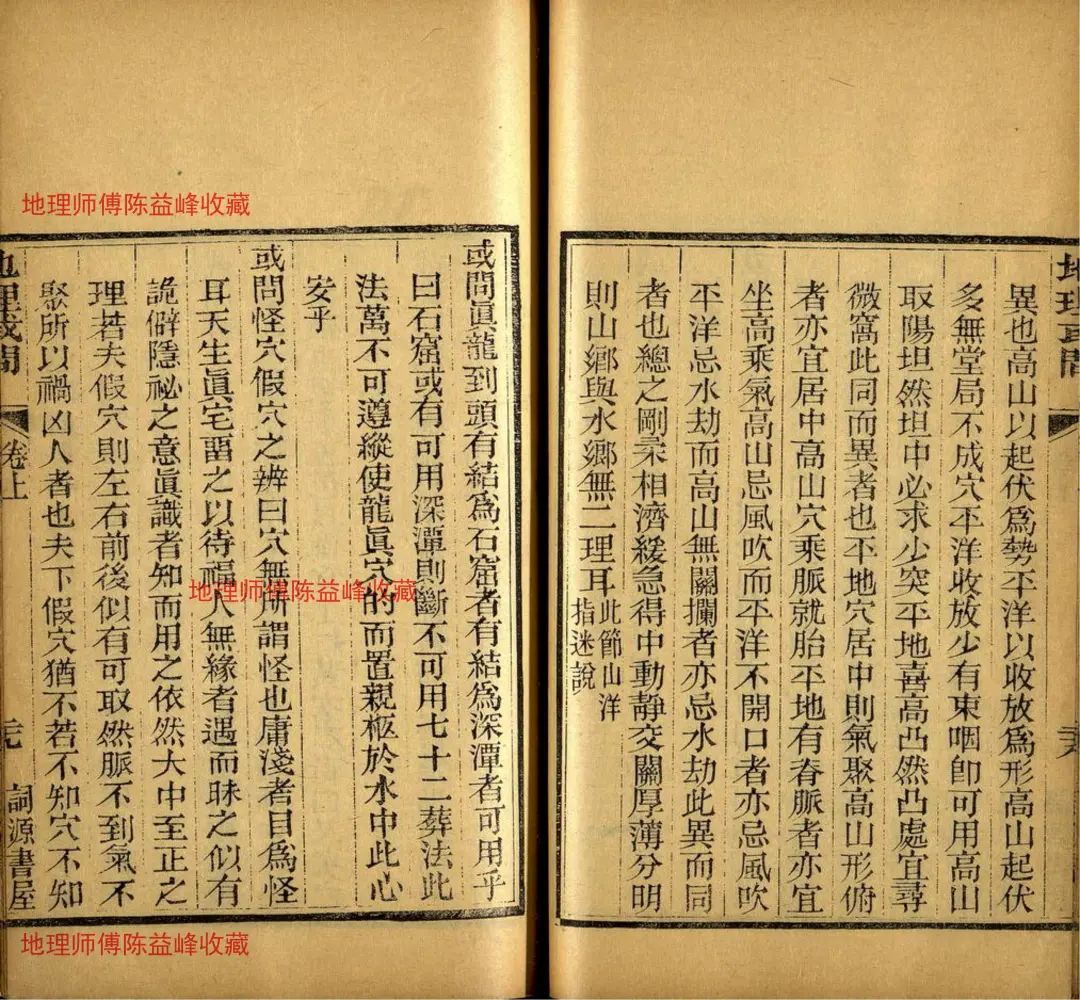 地理或問
異也高山以起伏爲勢平洋以收放爲形高山起伏
多無堂局不成穴平洋收放少有束咽卽可用高山
取陽坦然坦中必求少突平地喜高凸然凸處宜尋
微窩此同而異者也平地穴居中則氣聚高山形俯
者亦宜居中高山穴乘脈就胎平地有脊脈者亦宜
坐高乘氣高山忌風吹而平洋不開口者亦忌風吹
平洋忌水劫而高山無關攔者亦忌水劫此異而同
者也總之剛柔相濟緩急得中動靜交關厚薄分明
則山鄉與水鄉無二理耳此節山洋
指迷說
或問眞龍到頭有結爲石窟者有結爲深潭者可用乎
曰石窟或有可用深潭則斷不可用七十二葬法此
法萬不可遵縱使龍眞穴的而置親柩於水中此心
安乎
或問怪穴假穴之辨曰穴無所謂怪也庸淺者目爲怪
耳天生眞宅畱之以待福人無緣者遇而昧之似有
詭僻隱祕之意眞識者知而用之依然大中至正之
理若夫假穴則左右前後似有可取然脈不到氣不
聚所以禍凶人者也夫下假穴猶不若不知穴不知
地理或問
卷上
詞源書屋
地理师傅陈益峰收藏
地理师傅陈益峰收藏
地理师傅陈益峰收藏